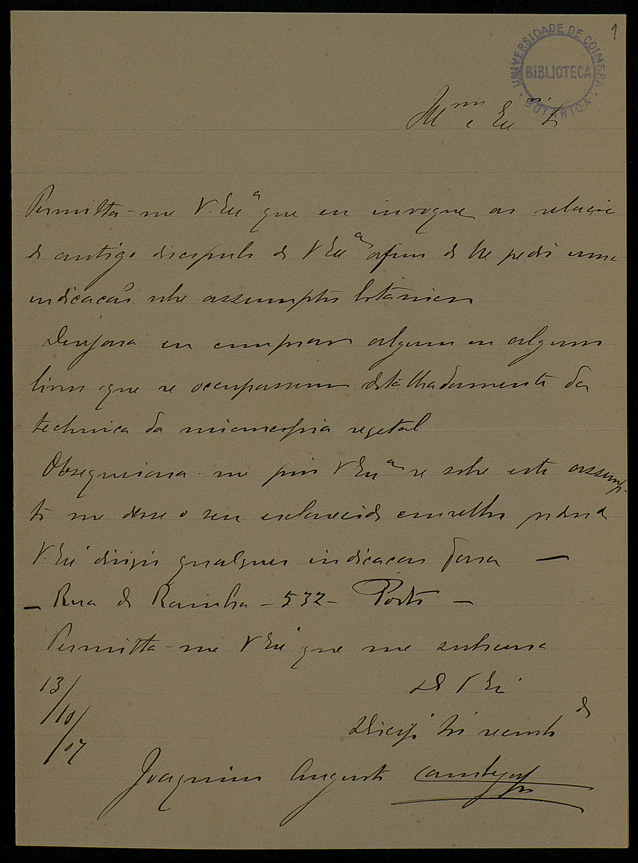 1
UNIVERSIDADE DE COIMBRA
BIBLIOTECA
BOTANICA
Illmo e Exmo Sr
Permitta-me V. Exª que eu invoque as relações
de antigo discipulo de V Exª afim de lhe pedir uma
indicação sobre assumptos botanicos
Desejava eu comprar algum ou alguns
livros que se occupassem detalhadamente da
technica da microscopia vegetal
Obsequiava-me pois V Exª se sobre este assump-
to me desse o seu esclarecido conselho podendo
V. Exª dirigir qualquer indicação para —
— Rua da Rainha - 532 - Porto —
Permitta-me V Exª que me subscreva
De V Exª
13/
/10/
/07
Joaquim Augusto